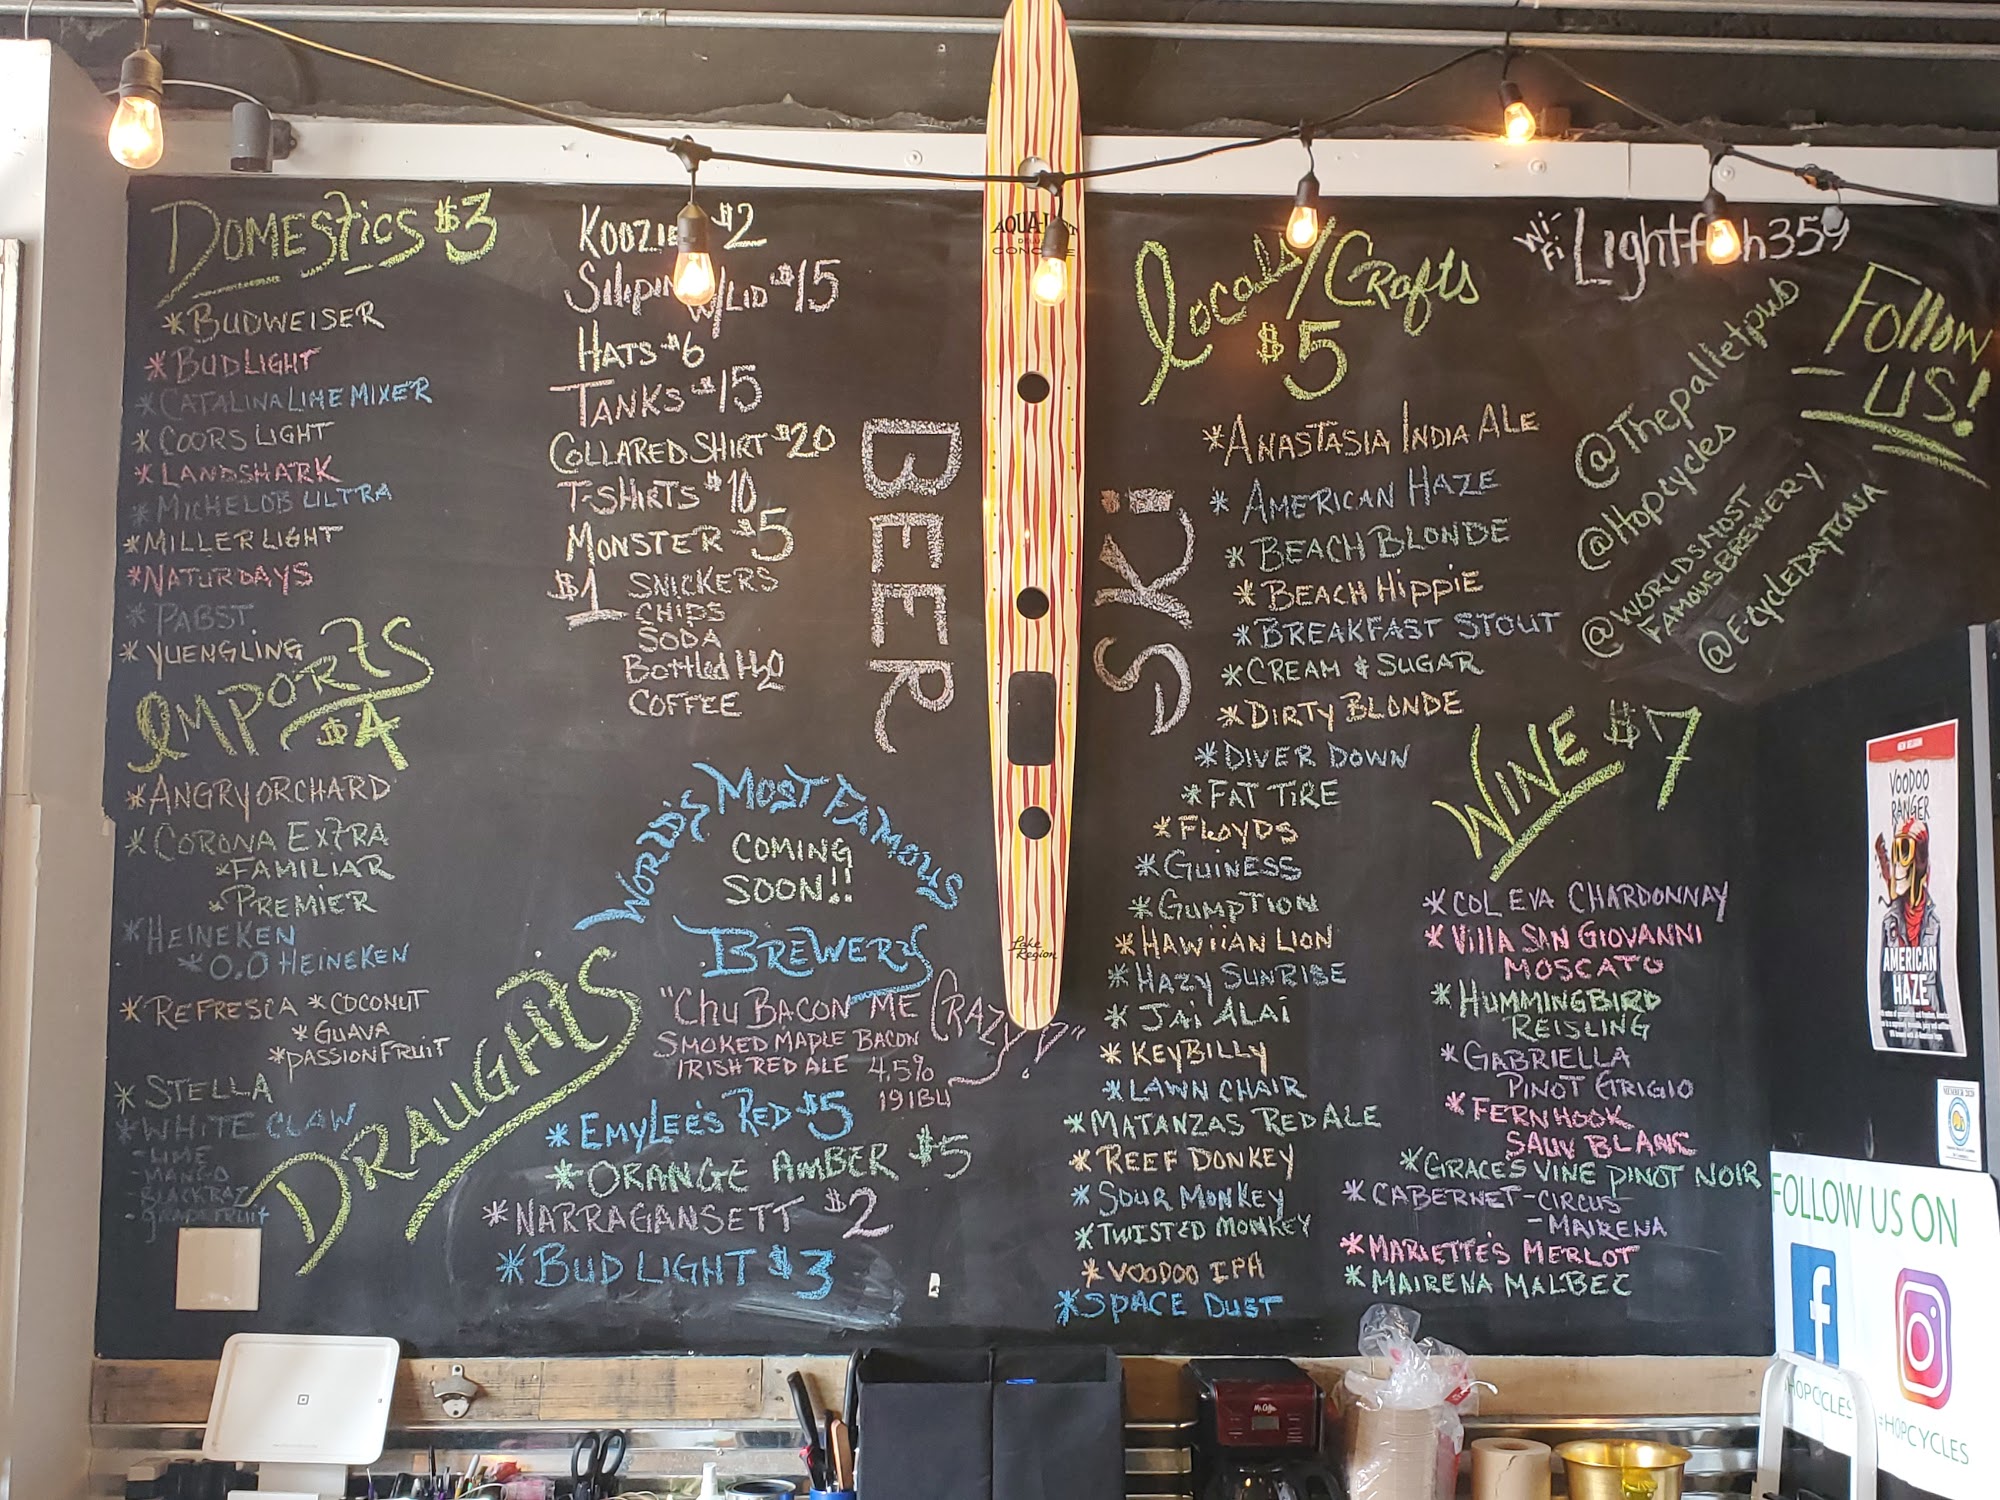 DOMESTICS $3
*BUDWEISER
*BUD LIGHT
*CATALINA LIME MIXER
*COORS LIGHT
*LANDSHARK
*MICHELOB ULTRA
*MILLER LIGHT
*NATURDAYS
*PABST
*YUENGLING
IMPORTS
$4
*ANGRY ORCHARD
*CORONA EXTRA
*FAMILIAR
*PREMIER
*HEINEKEN
*0.0 HEINEKEN
*REFRESCA *COCONUT
*GUAVA
*PASSIONFRUIT
*STELLA
*WHITE CLAW
-LIME
-MANGO
-BLACKRAZ
-GRAPEFRUIT
KOOZIE $2
W/LID $15
HATS $6
TANKS $15
COLLARED SHIRT $20
T-SHIRTS $10
MONSTER $5
$1 SNICKERS
CHIPS
SODA
Bottled H2O
COFFEE
BEER
SKi
WORLD'S MOST FAMOUS
COMING
SOON!!
BREWERY
"CHU BACON ME CRAZY!?"
SMOKED MAPLE BACON
IRISH RED ALE 4.5%
19 IBU
DRAUGHTS
*EMYLEE'S RED $5
*ORANGE AMBER $5
*NARRAGANSETT $2
*BUD LIGHT $3
Lake
Region
Locals/CRafts
$5
*ANASTASIA INDIA ALE
*AMERICAN HAZE
*BEACH BLONDE
*BEACH HiPPiE
*BREAKFAST STOUT
*CREAM & SUGAR
*DIRTY BLONDE
*DIVER DOWN
*FAT TIRE
*FLOYDS
*GUINESS
*GUMPTION
*HAWIIAN LION
*HAZY SUNRISE
*JAI ALAI
*KEYBILLY
*LAWN CHAIR
*MATANZAS RED ALE
*REEF DONKEY
*SOUR MONKEY
*TWISTED MONKEY
*VOODOO IPA
*SPACE DUST
Wi-Fi
Follow
US!
@Thepalletpub
@Hopcycles
@WORLDSMOST
FAMOUSBREWERY
@E-cycleDAYTONA
WINE $7
*COL EVA CHARDONNAY
*Villa SAN GIOVANNI
MOSCATO
*HUMMINGBIRD
REISLING
*GABRIELLA
PINOT GRIGIO
*FERNHOOK
SAUV BLANC
*GRACES VINE PINOT NOIR
*CABERNET-CIRCUS
-MAIRENA
*MARIETTE'S MERLOT
*MAIRENA MALBEC
VOODOO
RANGER
AMERICAN
HAZE
MEMBER 2020
FOLLOW US ON
Mr. Coffee